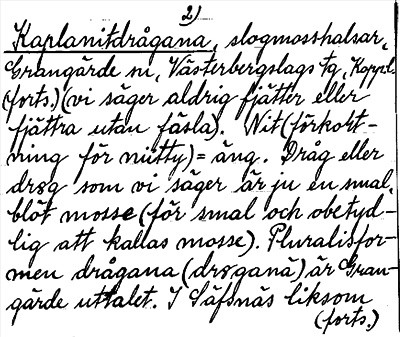 2)
Kaplanitdrågana, slogmosshalsar,
Grangärde sn, Västerbergslags tg, Koppl.
(forts.) (vi säger aldrig fjätter eller
fjättra utan fäsla). Nit (förkort-
ning för nitty) = äng. Dråg eller
drog som vi säger är ju en smal,
blöt mosse (för smal och obetyd-
lig att kallas mosse). Pluralisfor-
men drågana (drogana) är Gran-
gärde uttalet. I Säfsnäs liksom
(forts.)